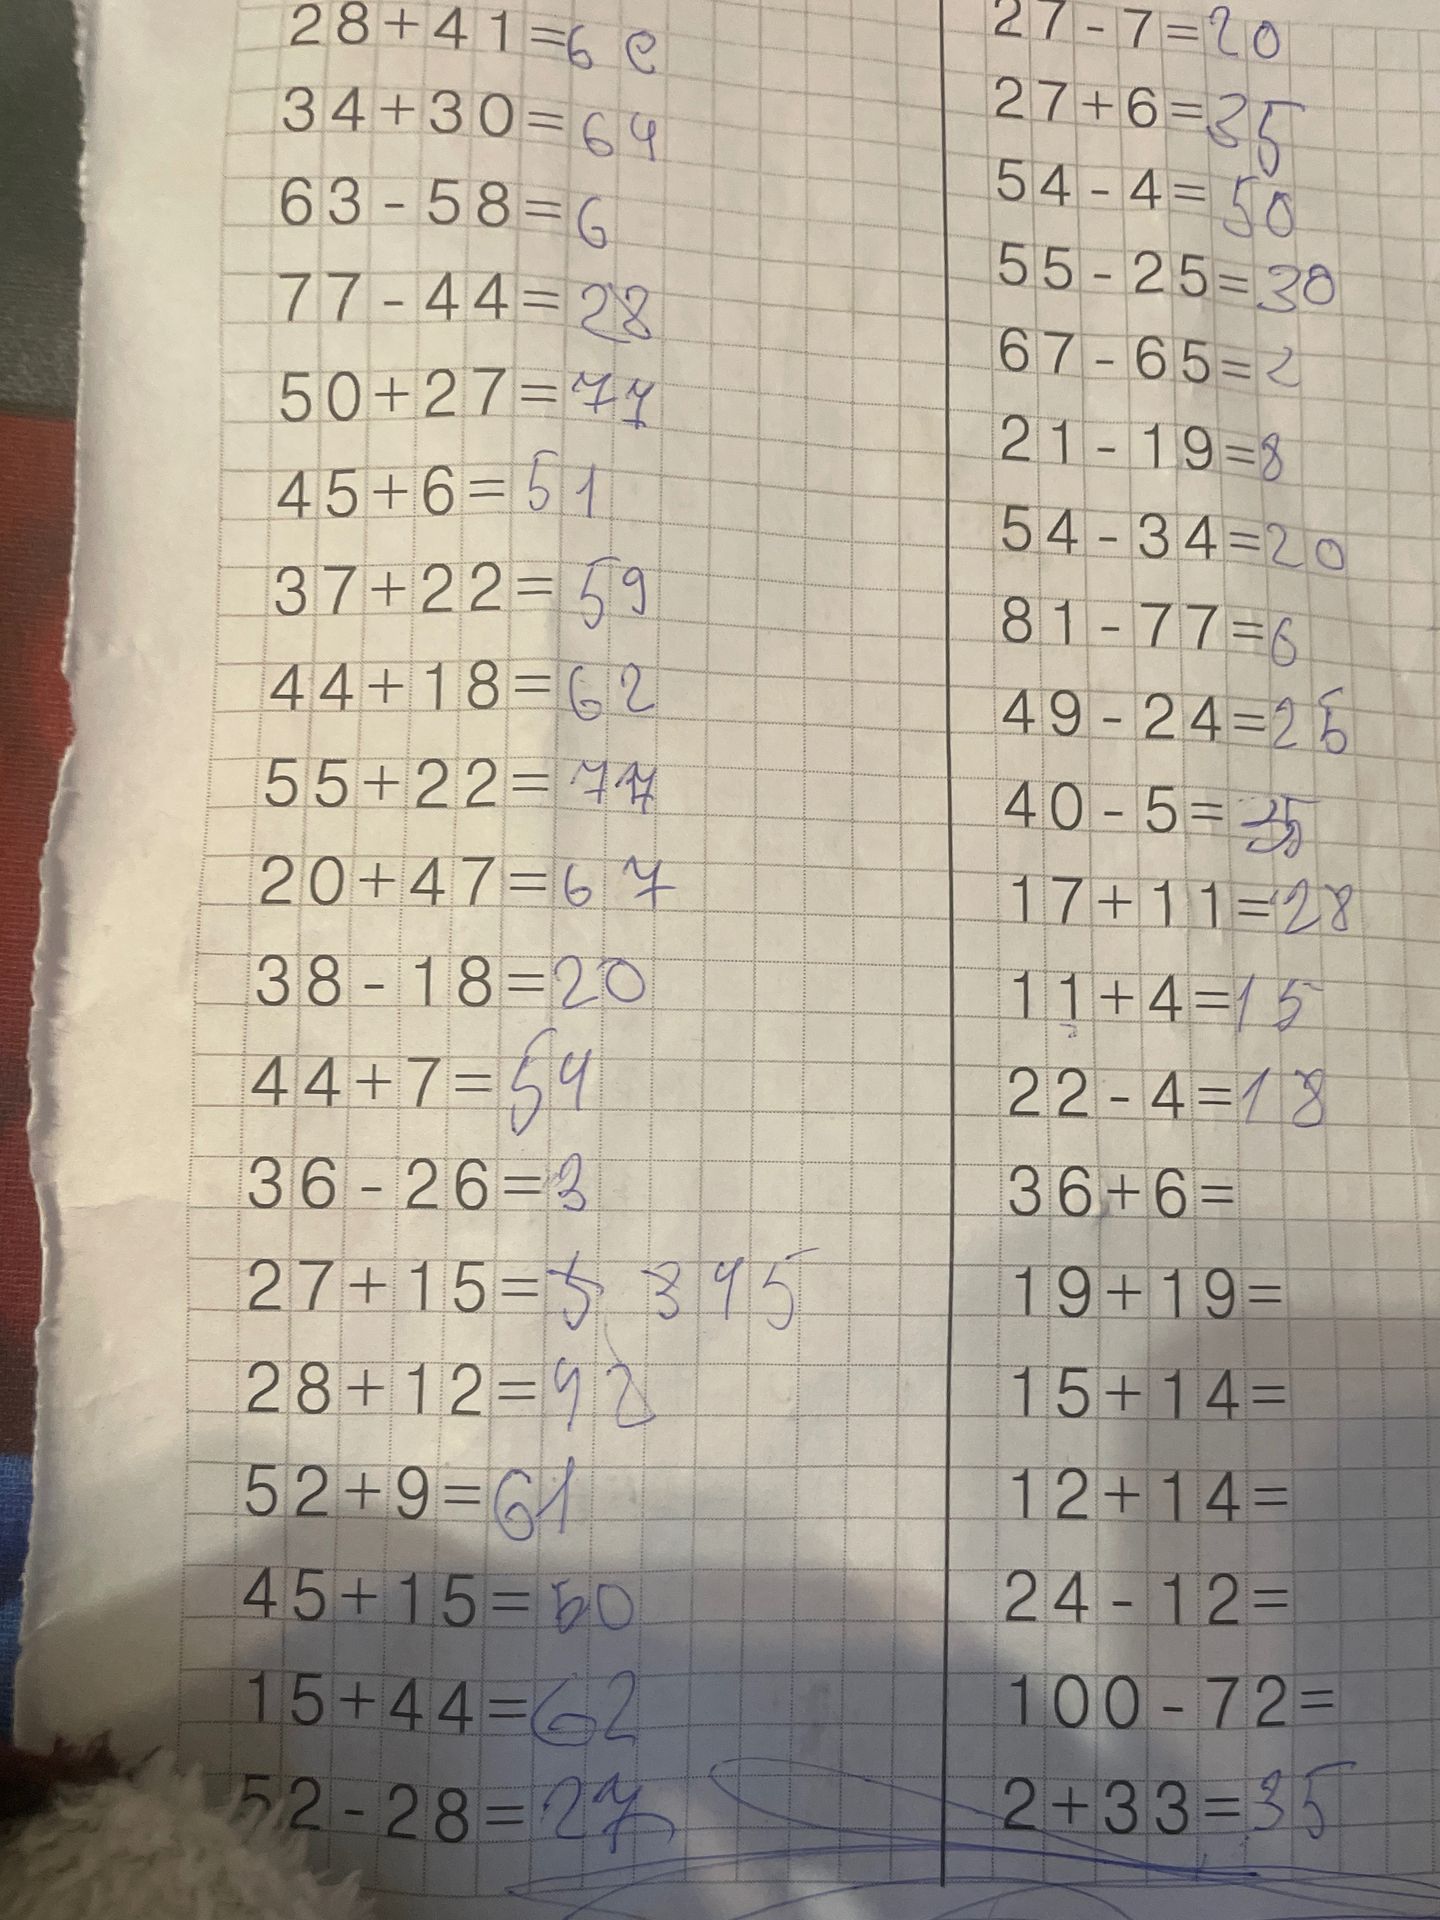 28+41=6e
34+30=64
63-58=6
77-44=28
50+27=77
45+6=51
37+22=59
44+18=62
55+22=77
20+47=67
38-18=20
44+7=54
36-26=3
27+15= 3 45
28+12=42
52+9=61
45+15=60
15+44=62
52-28=27
27-7=20
27+6=35
54-4=50
55-25=30
67-65=2
21-19=8
54-34=20
81-77=6
49-24=25
40-5=35
17+11=28
11+4=15
22-4=18
36+6=
19+19=
15+14=
12+14=
24-12=
100-72=
2+33=35